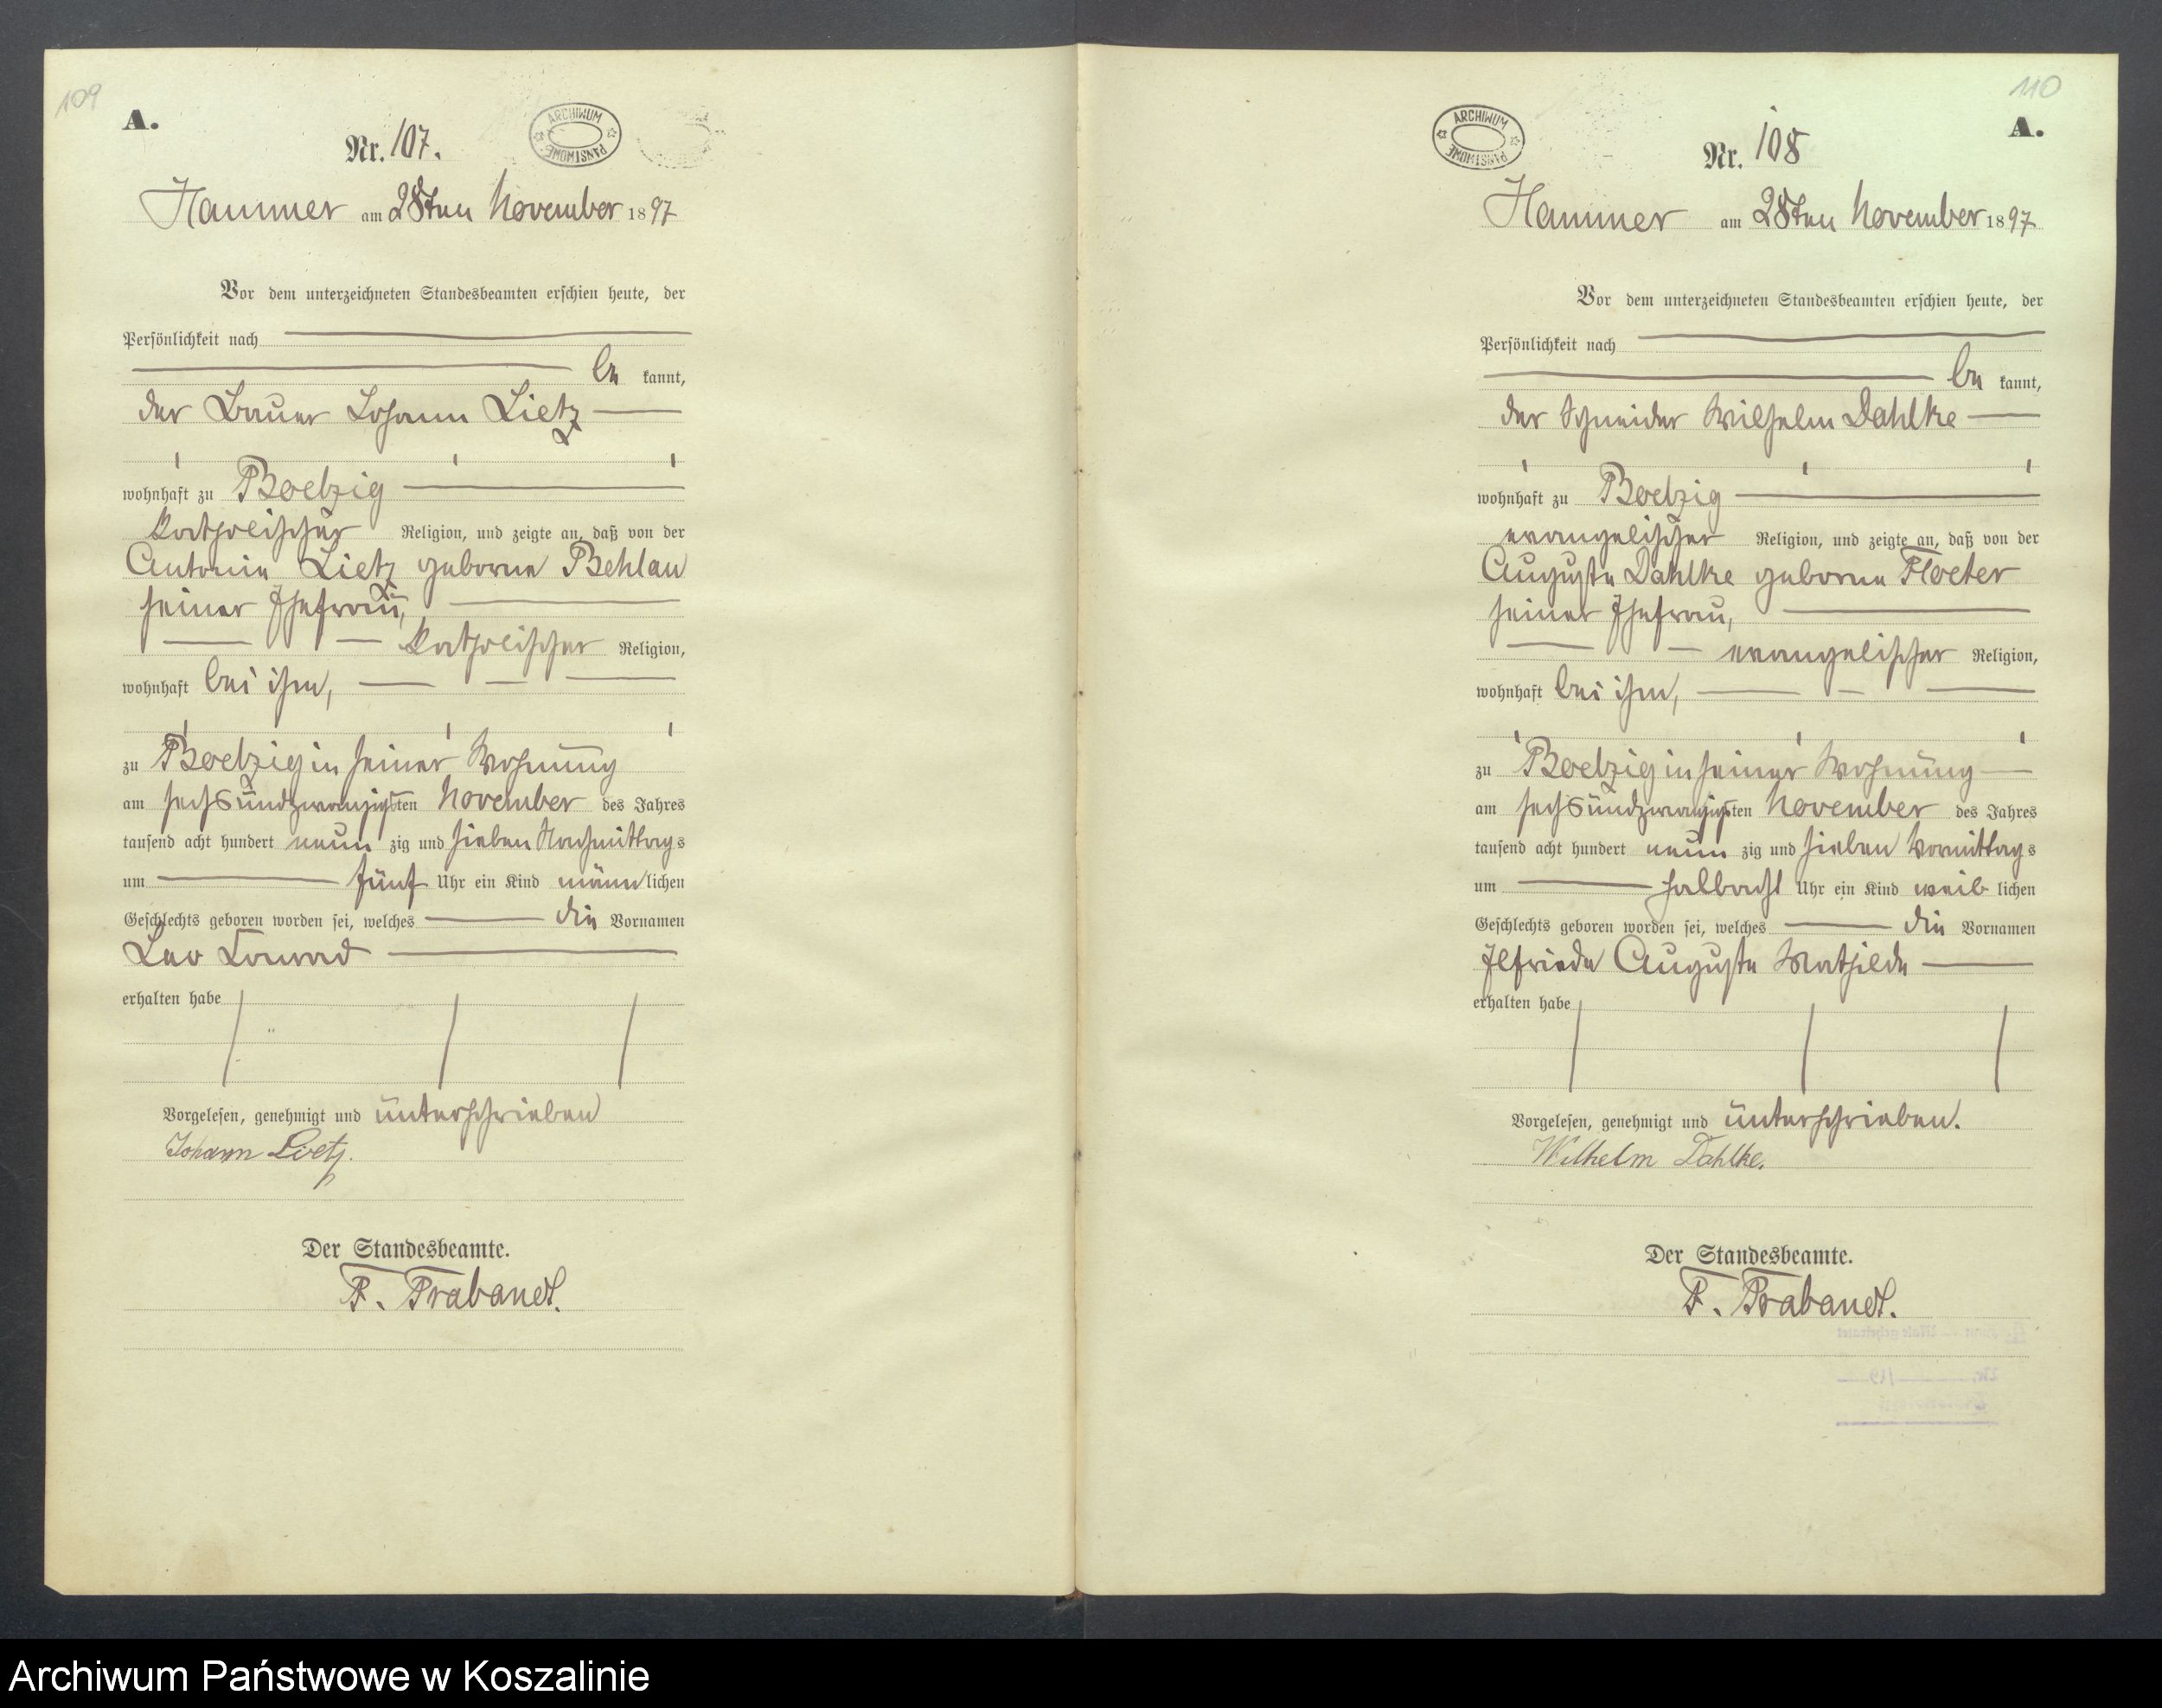 109
A.
ARCHIWUM PAŃSTWOWE
Nr. 107.
Hammer am 28ten November 1897
Vor dem unterzeichneten Standesbeamten erschien heute, der
Persönlichkeit nach
be kannt,
der Bauer Johann Lietz
wohnhaft zu Boelzig
katholischer Religion, und zeigte an, daß von der
Antonie Lietz geborne Behlau
seiner Ehefrau,
katholischer Religion,
wohnhaft bei ihm,
zu Boelzig in seiner Wohnung
am sechsundzwanzigsten November des Jahres
tausend acht hundert neun zig und sieben Nachmittags
um fünf Uhr ein Kind männlichen
Geschlechts geboren worden sei, welches die Vornamen
Leo Conrad
erhalten habe
Vorgelesen, genehmigt und unterschrieben
Johann Lietz.
Der Standesbeamte.
F. Brabandt.
110
A.
ARCHIWUM PAŃSTWOWE
Nr. 108
Hammer am 28ten November 1897
Vor dem unterzeichneten Standesbeamten erschien heute, der
Persönlichkeit nach
be kannt,
der Schneider Wilhelm Dahlke
wohnhaft zu Boelzig
evangelischer Religion, und zeigte an, daß von der
Auguste Dahlke geborne Floeter
seiner Ehefrau,
evangelischer Religion,
wohnhaft bei ihm,
zu Boelzig in seiner Wohnung
am sechsundzwanzigsten November des Jahres
tausend acht hundert neun zig und sieben Vormittags
um halbacht Uhr ein Kind weib lichen
Geschlechts geboren worden sei, welches die Vornamen
Elfriede Auguste Mathilde
erhalten habe
Vorgelesen, genehmigt und unterschrieben.
Wilhelm Dahlke.
Der Standesbeamte.
F. Brabandt.
Archiwum Państwowe w Koszalinie